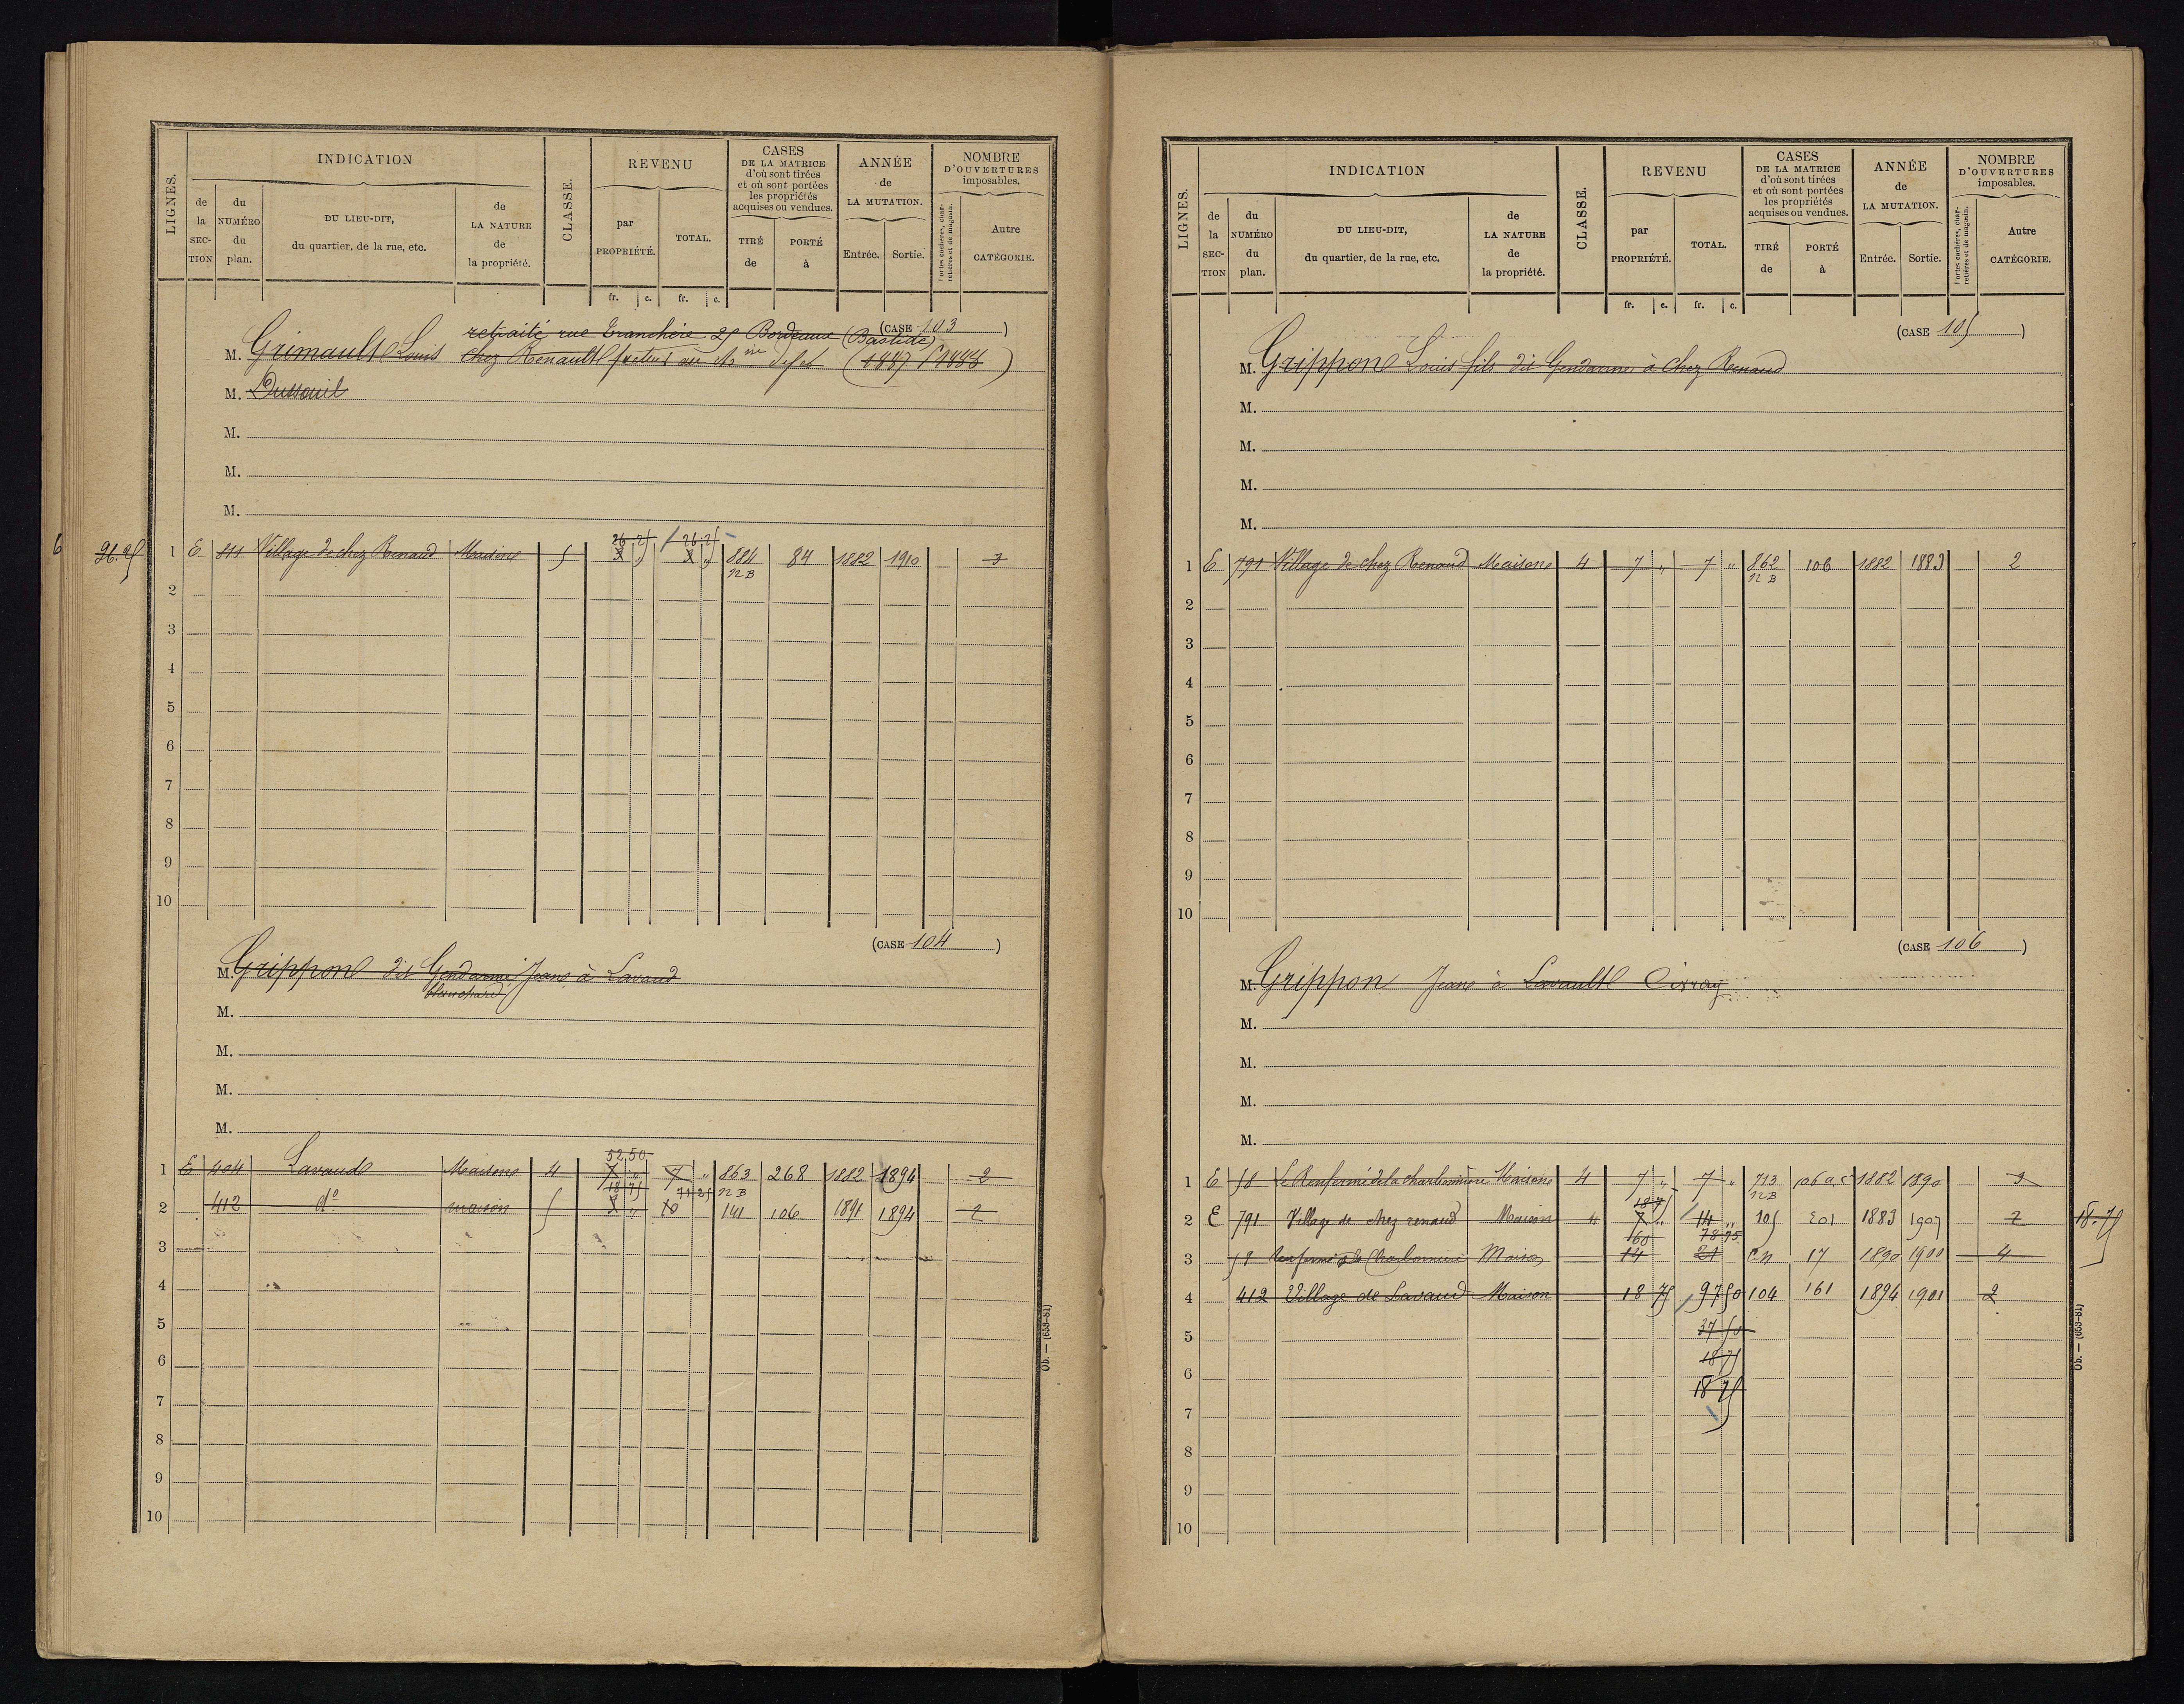 LIGNES.
INDICATION
de la SECTION
du NUMÉRO du plan.
DU LIEU-DIT, du quartier, de la rue, etc.
de LA NATURE de la propriété.
CLASSE.
REVENU
par PROPRIÉTÉ.
TOTAL.
CASES DE LA MATRICE d'où sont tirées et où sont portées les propriétés acquises ou vendues.
TIRÉ de
PORTÉ à
ANNÉE de LA MUTATION.
Entrée. Sortie.
NOMBRE D'OUVERTURES imposables.
Portes cochères, charretières et de magasin.
Autre CATÉGORIE.
fr. c. fr. c.
(CASE 103 )
retraité rue Tranchère 25 Bordeaux (Bastide)
M. Grimault Louis chez Renault facteur
M. Dussouil
M.
M.
M.
26 25 26 25
6 26.25 1 E 811 Village de chez Renaud Maison 5 884 84 1882 1910 3
NB
2
3
4
5
6
7
8
9
10
(CASE 104 )
M. Grippon dit Gendarme Jean à Lavaud
M.
M.
M.
M.
52 50
1 E 404 Lavaud Maison 4 7 " 7 " 863 268 1882 1894 2
18 75 71 25 NB
2 412 do maison 5 10 141 106 1891 1894 2
3
4
5
6
7
8
9
10
Ob. — (653-81)
LIGNES.
INDICATION
de la SECTION
du NUMÉRO du plan.
DU LIEU-DIT, du quartier, de la rue, etc.
de LA NATURE de la propriété.
CLASSE.
REVENU
par PROPRIÉTÉ.
TOTAL.
CASES DE LA MATRICE d'où sont tirées et où sont portées les propriétés acquises ou vendues.
TIRÉ de
PORTÉ à
ANNÉE de LA MUTATION.
Entrée. Sortie.
NOMBRE D'OUVERTURES imposables.
Portes cochères, charretières et de magasin.
Autre CATÉGORIE.
fr. c. fr. c.
(CASE 105 )
M. Grippon Louis fils dit Gendarme à Chez Renaud
M.
M.
M.
M.
1 E 791 Village de chez Renaud Maison 4 7 " 7 " 862 106 1882 1883 2
NB
2
3
4
5
6
7
8
9
10
(CASE 106 )
M. Grippon Jean à Lavault Civray
M.
M.
M.
M.
1 E 58 Le Renfermé de la Charbonnière Maison 4 7 " 7 " 713 106 ac 1882 1890 3
18 75 NB
2 E 791 Village de chez renaud Maison 4 7 " 14 " 105 201 1883 1907 2 18.75
60 78 75
3 58 Renfermé de la Charbonnière Maison 14 21 C.N 17 1890 1900 4
4 412 Village de Lavaud Maison 18 75 97 50 104 161 1894 1901 2
5 37 50
6 18 75
18 75
7
8
9
10
Ob. — (653-81)